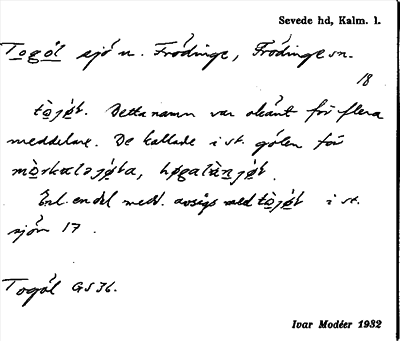 Sevede hd, Kalm. l.
Togöl sjö n. Frödinge, Frödinge sn.
18
tòjø̀t. Detta namn var okänt för flera
meddelare. De kallade i st. gölen för
Enl. en del medd. avsågs med tòjø̀t i st.
sjön 17.
Togöl GS 36.
Ivar Modéer 1932